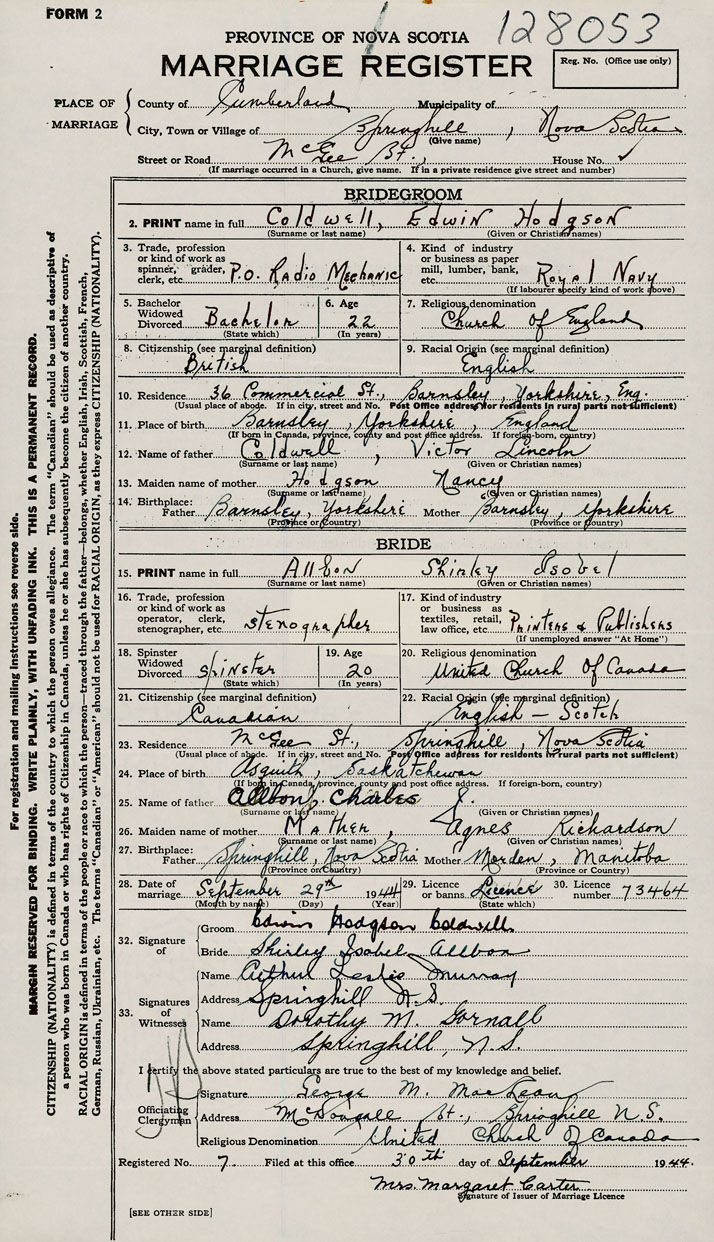 FORM 2
128053
PROVINCE OF NOVA SCOTIA
MARRIAGE REGISTER
Reg. No. (Office use only)
PLACE OF MARRIAGE
County of Cumberland Municipality of
City, Town or Village of Springhill, Nova Scotia
(Give name)
Street or Road McGee St., House No.
(If marriage occurred in a Church, give name. If in a private residence give street and number)
BRIDEGROOM
2. PRINT name in full Coldwell, Edwin Hodgson
(Surname or last name) (Given or Christian names)
3. Trade, profession or kind of work as spinner, grader, clerk, etc. P.O. Radio Mechanic
4. Kind of industry or business as paper mill, lumber, bank, etc. Royal Navy
(If labourer specify kind of work above)
5. Bachelor Widowed Divorced Bachelor
(State which)
6. Age 22
(In years)
7. Religious denomination
Church of England
8. Citizenship (see marginal definition)
British
9. Racial Origin (see marginal definition)
English
10. Residence 36 Commercial St., Barnsley, Yorkshire, Eng.
(Usual place of abode. If in city, street and No. Post Office address for residents in rural parts not sufficient)
11. Place of birth Barnsley, Yorkshire, England
(If born in Canada, province, county and post office address. If foreign-born, country)
12. Name of father Coldwell, Victor Lincoln
(Surname or last name) (Given or Christian names)
13. Maiden name of mother Hodgson Nancy
(Surname or last name) (Given or Christian names)
14. Birthplace: Father Barnsley, Yorkshire Mother Barnsley, Yorkshire
(Province or Country) (Province or Country)
BRIDE
15. PRINT name in full Allbon Shirley Isobel
(Surname or last name) (Given or Christian names)
16. Trade, profession or kind of work as operator, clerk, stenographer, etc. Stenographer
17. Kind of industry or business as textiles, retail, law office, etc. Printers & Publishers
(If unemployed answer "At Home")
18. Spinster Widowed Divorced Spinster
(State which)
19. Age 20
(In years)
20. Religious denomination
United Church Of Canada
21. Citizenship (see marginal definition)
Canadian
22. Racial Origin (see marginal definition)
English - Scotch
23. Residence McGee St., Springhill, Nova Scotia
(Usual place of abode. If in city, street and No. Post Office address for residents in rural parts not sufficient)
24. Place of birth Asquith, Saskatchewan
(If born in Canada, province, county and post office address. If foreign-born, country)
25. Name of father Allbon, Charles J.
(Surname or last name) (Given or Christian names)
26. Maiden name of mother Mather, Agnes Richardson
(Surname or last name) (Given or Christian names)
27. Birthplace: Father Springhill, Nova Scotia Mother Morden, Manitoba
(Province or Country) (Province or Country)
28. Date of marriage September 29th 1944
(Month by name) (Day) (Year)
29. Licence or banns. Licence
(State which)
30. Licence number 73464
32. Signature of
Groom Edwin Hodgson Coldwell
Bride Shirley Isobel Allbon
33. Signatures of Witnesses
Name Arthur Leslie Murray
Address Springhill N.S.
Name Dorothy M. Gornall
Address Springhill, N.S.
I certify the above stated particulars are true to the best of my knowledge and belief.
Officiating Clergyman
Signature George M. MacLean
Address McDougall St., Springhill N.S.
Religious Denomination United Church Of Canada
Registered No. 7. Filed at this office 30th day of September 1944.
Mrs. Margaret Carter
Signature of Issuer of Marriage Licence
[SEE OTHER SIDE]
For registration and mailing instructions see reverse side.
MARGIN RESERVED FOR BINDING. WRITE PLAINLY, WITH UNFADING INK. THIS IS A PERMANENT RECORD.
CITIZENSHIP (NATIONALITY) is defined in terms of the country to which the person owes allegiance. The term "Canadian" should be used as descriptive of
a person who was born in Canada or who has rights of Citizenship in Canada, unless he or she has subsequently become the citizen of another country.
RACIAL ORIGIN is defined in terms of the people or race to which the person—traced through the father—belongs, whether English, Irish, Scottish, French,
German, Russian, Ukrainian, etc. The terms "Canadian" or "American" should not be used for RACIAL ORIGIN, as they express CITIZENSHIP (NATIONALITY).